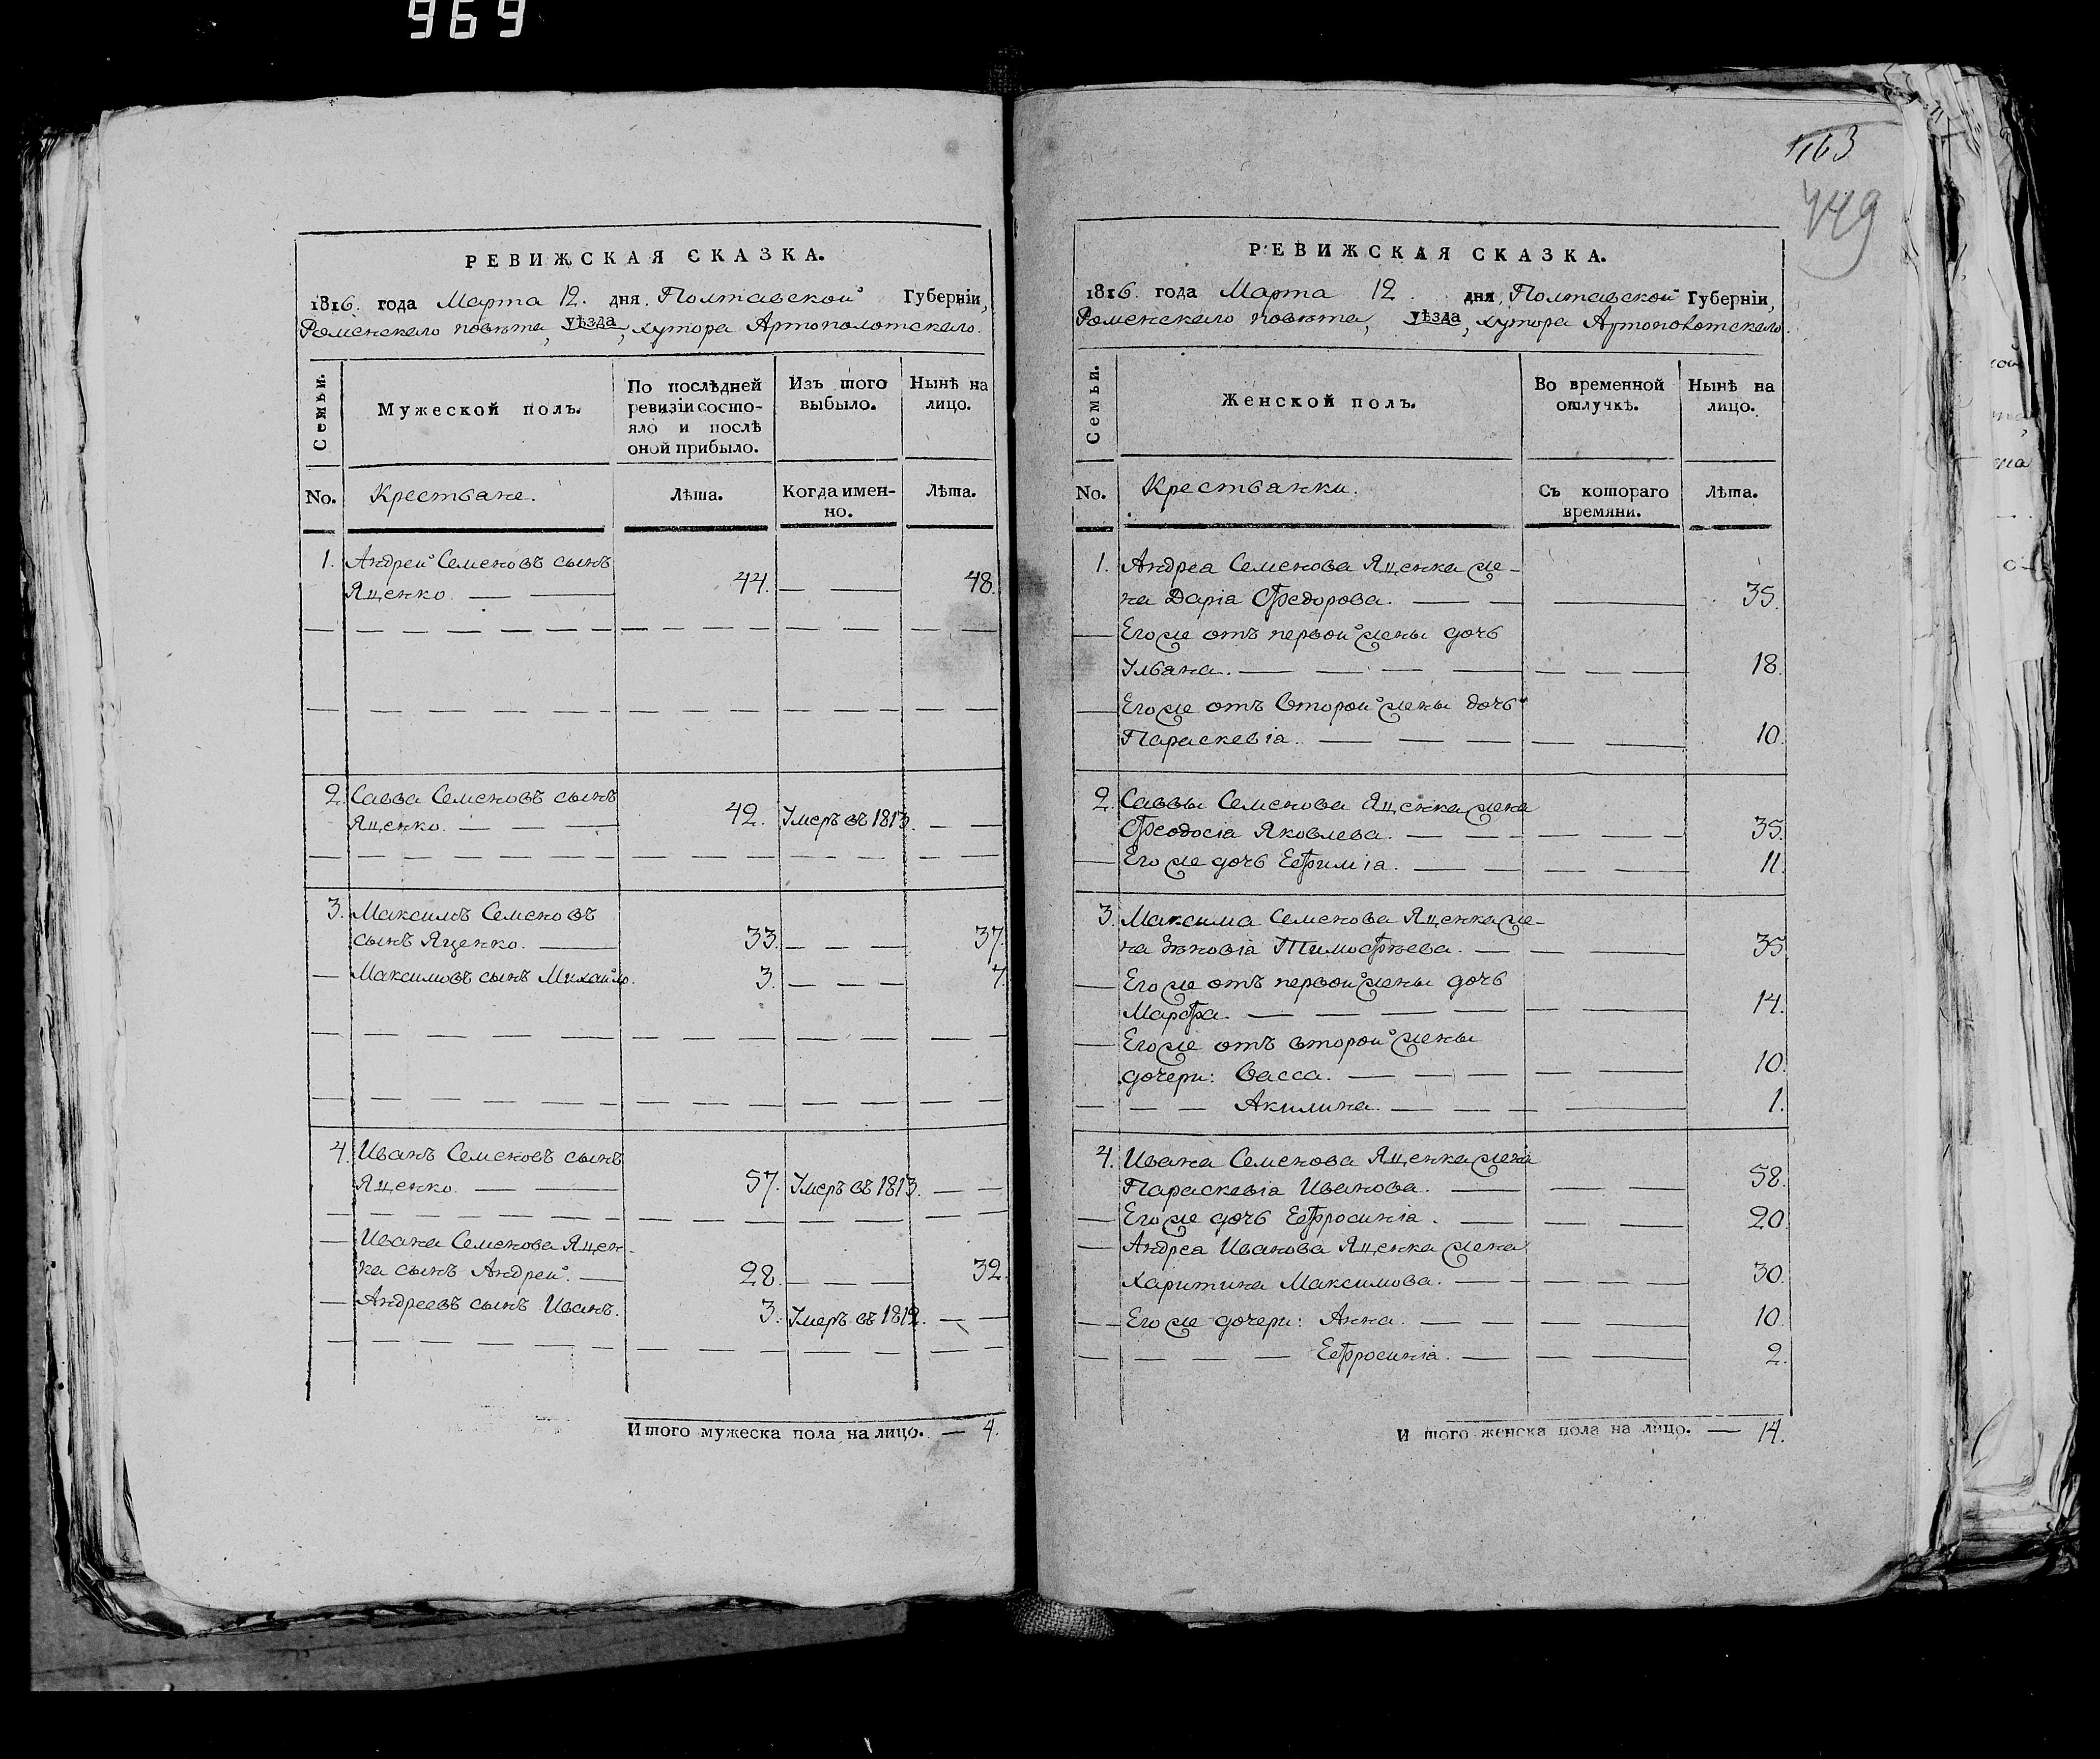 969
РЕВИЖСКАЯ СКАЗКА.
1816. года Марта 12. дня. Полтавской Губерніи,
Роменскаго повѣта, уѣзда, хутора Артополотскаго.
Семьи.
Мужеской полъ.
По послѣдней
ревизіи состо-
яло и послѣ
оной прибыло.
Изъ того
выбыло.
Нынѣ на
лицо.
No.
Крестьане.
Лѣта.
Когда имен-
но.
Лѣта.
1. Андрей Семеновъ сынъ
Яценко. 44. 48.
2. Савва Семеновъ сынъ
Яценко. 42. Умеръ въ 1813.
3. Максимъ Семеновъ
сынъ Яценко. 33. 37.
Максимовъ сынъ Михайло. 3. 7.
4. Иванъ Семеновъ сынъ
Яценко. 57. Умеръ въ 1813.
Ивана Семенова Яцен-
ка сынъ Андрей. 28. 32.
Андреевъ сынъ Иванъ. 3. Умеръ въ 1812.
Итого мужеска пола на лицо. — 4.
1163
449
РЕВИЖСКАЯ СКАЗКА.
1816. года Марта 12. дня, Полтавской Губерніи,
Роменскаго повѣта, уѣзда, хутора Артополотскаго.
Семьи.
Женской полъ.
Во временной
отлучкѣ.
Нынѣ на
лицо.
No.
Крестьанки.
Съ котораго
времяни.
Лѣта.
1. Андреа Семенова Яценка же-
на Даріа Федорова. 35.
Его же отъ первой жены дочь
Ульана. 18.
Его же отъ второй жены дочь
Параскевіа. 10.
2. Саввы Семенова Яценка жена
Феодосіа Яковлева. 35.
Его же дочь Ефиміа. 11.
3. Максима Семенова Яценка же-
на Зѣновіа Тимофѣева. 35.
Его же отъ первой жены дочь
Марфа. 14.
Его же отъ второй жены
дочери: Васса. 10.
Акилина. 1.
4. Ивана Семенова Яценка жена
Параскевіа Иванова. 58.
Его же дочь Ефросиніа. 20.
Андреа Иванова Яценка жена
Харитина Максимова. 30.
Его же дочери: Анна. 10.
Ефросиніа. 2.
И того женска пола на лицо. — 14.